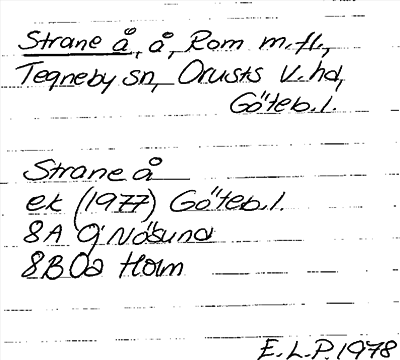 Strane å, å, Rom m.fl.,
Tegneby sn, Orusts V. hd,
Göteb. l.
Strane å
ek (1977) Göteb. l.
8A 9j Näsund
8B 0a Holm
E. L. P. 1978